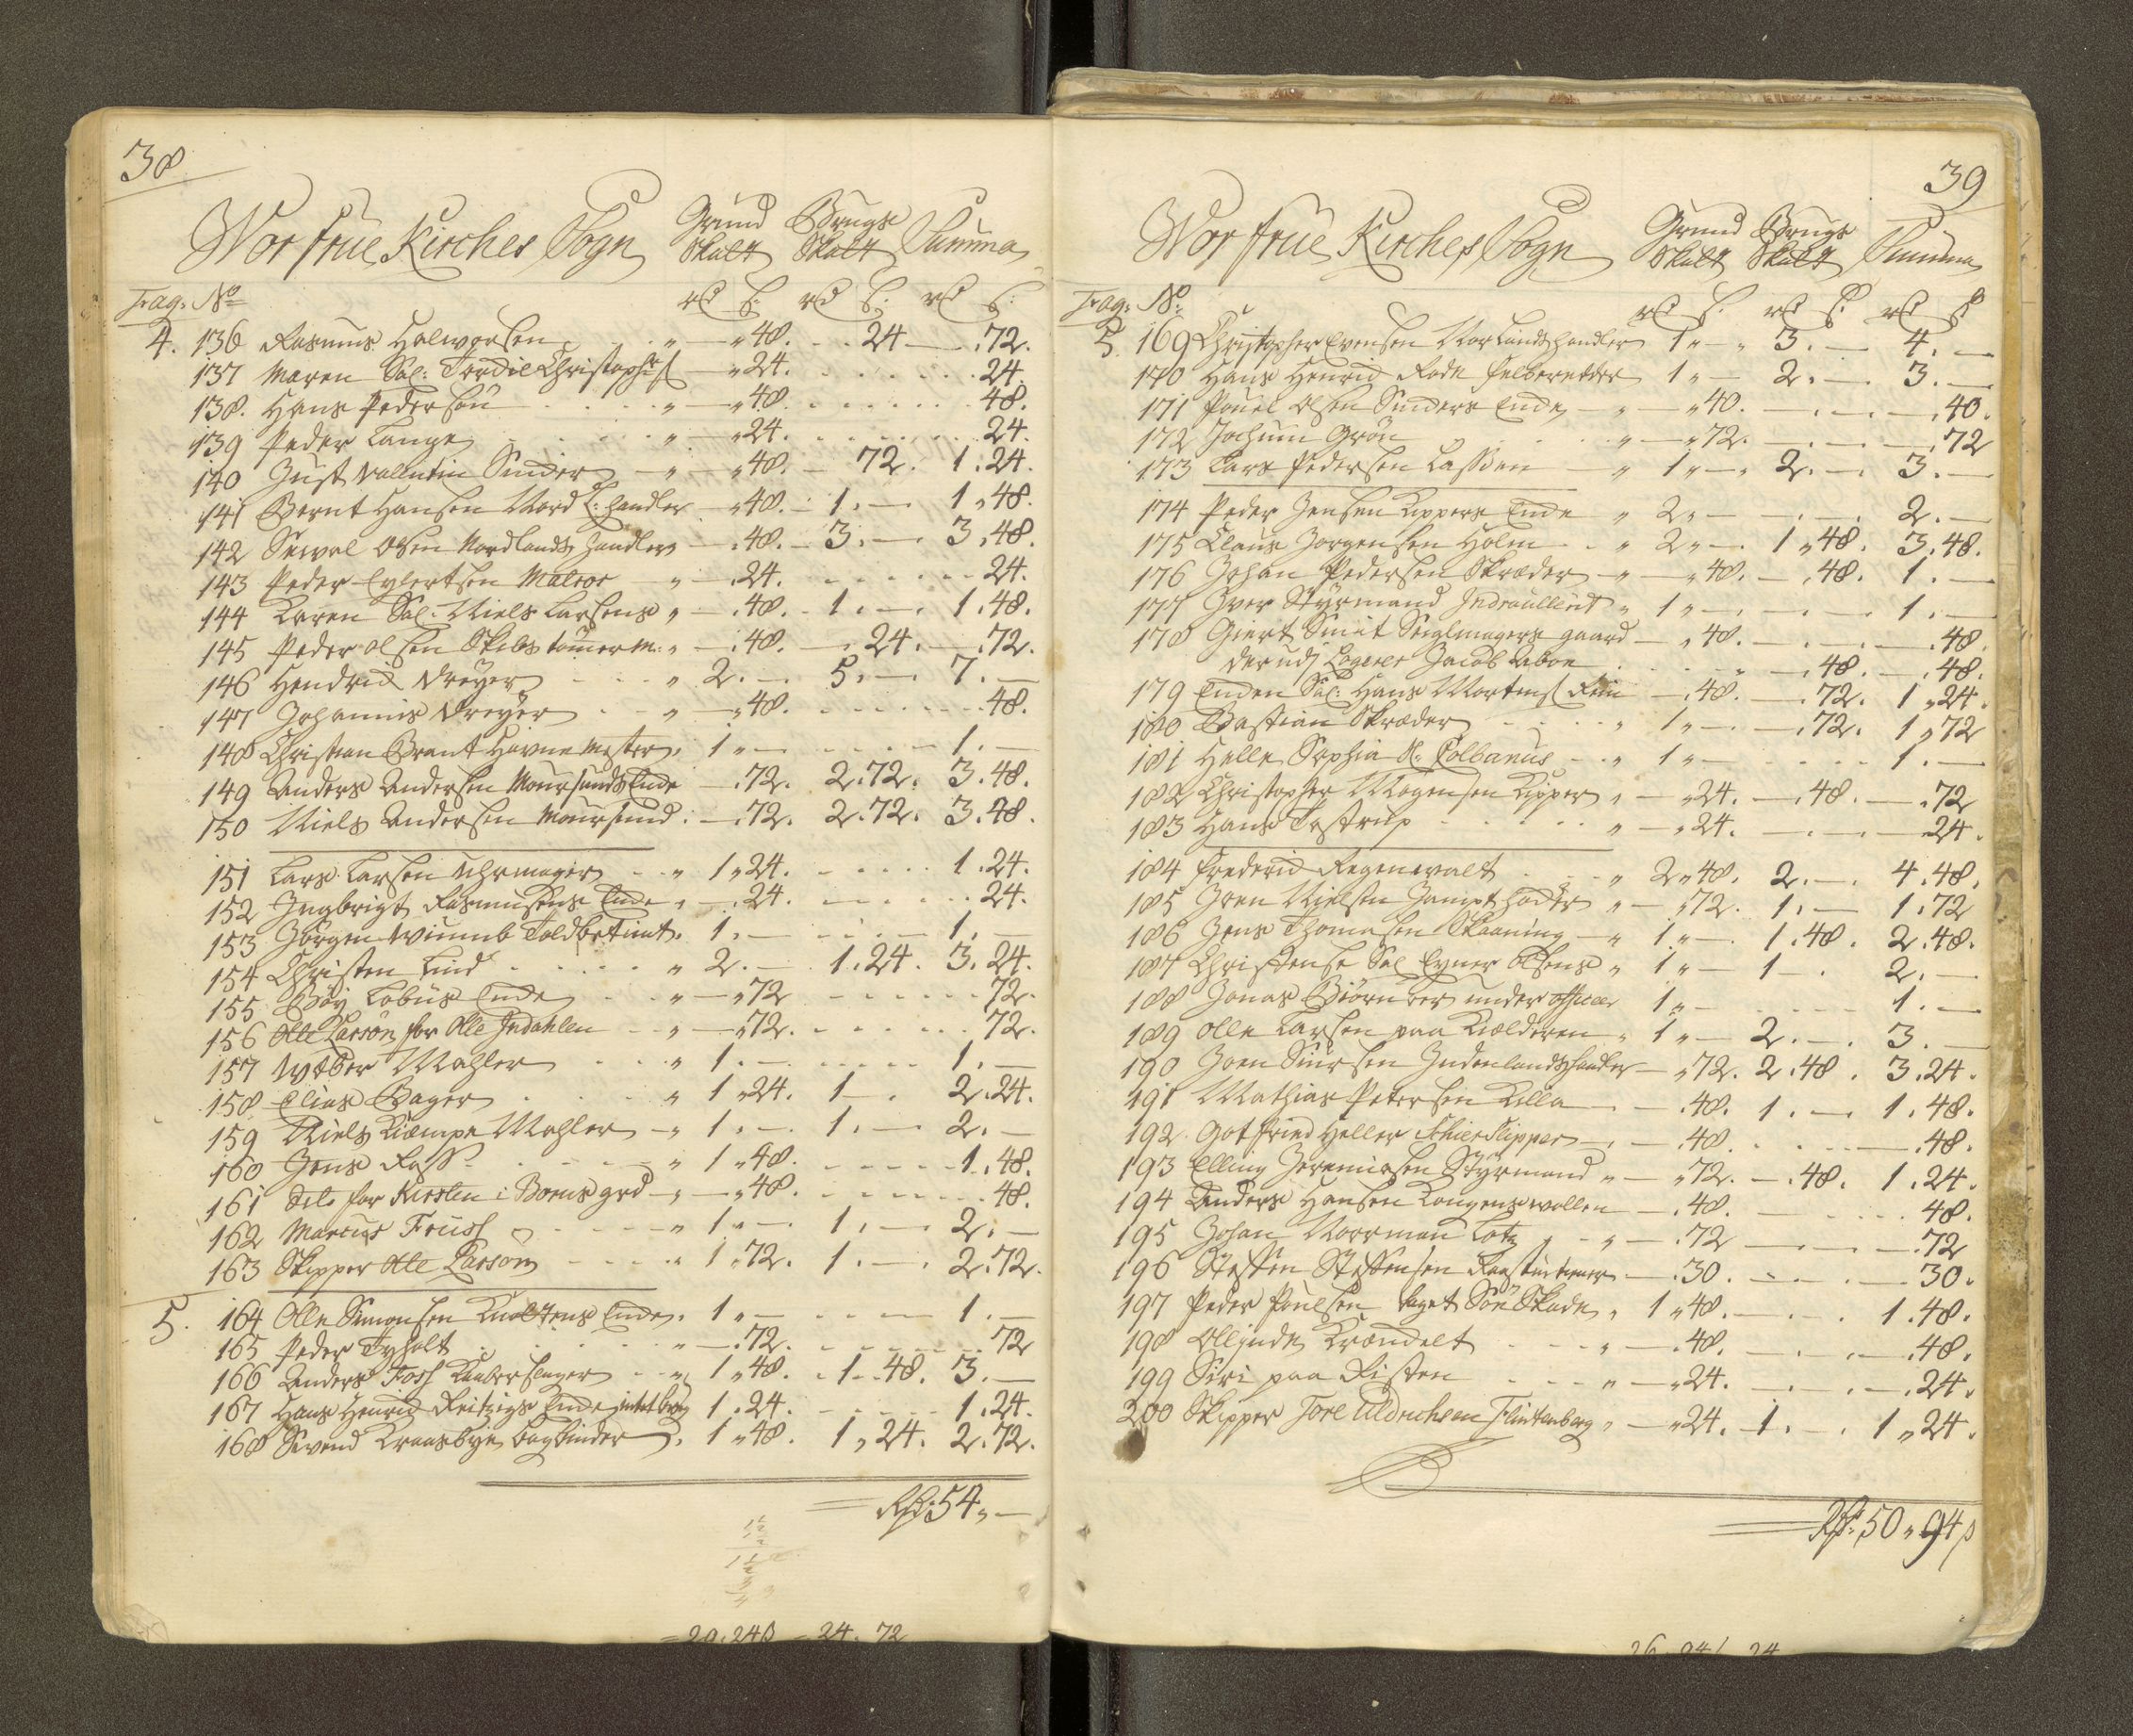 38
Wor früe Kirches Sogn Grund Brugs
Skatt Skatt Summa
Fag: No rd s: rd s: rd s:
4. 136 Rasmus Halworsen " — " 48. . . 24 — . 72.
137 Maren Sal: Christophers — " 24. . . . . 24.
138. Hans Pedersen . . . " — " 48. . . . . 48.
139 Peder Lange . . . " — " 24. . . . . 24.
140 Just Vallentin Snider — " — " 48. — 72. 1. 24.
141 Bernt Hansen Nord L: handler — " 48. — 1. — 1 " 48.
142 Siwal Olsen Nordlands handler — . 48. — 3. — 3. 48.
143 Peder Eylertsen Matros " — . 24. . . . . 24.
144 Karen Sal: Niels Larsens " — . 48. — 1. — 1. 48.
145 Peder Olsen Skibs tømerm: " — . 48. — . 24. — . 72.
146 Hendrich Dreyer . . " 2. — 5. — 7. —
147 Johannis Dreyer . . " — " 48. . . . . 48.
148 Christian Brant Havne Mester. 1 " — . . . . 1. —
149 Anders Andersen Moursunds Ende — . 72. 2. 72. 3. 48.
150 Niels Andersen Moursund. — . 72. 2. 72. 3. 48.
151 Lars Larsen Uhrmager . . " 1 " 24. . . . . 1. 24.
152 Ingbrigt Rasmusens Ende " — . 24. . . . . 24.
153 Jørgen Toldbetient. 1. — . . . . 1. —
154 Christen Lind . . . . " 2. — 1. 24. 3. 24.
155. Lobüs Ende . . " — " 72 . . . . 72.
156 Olle Larsøn for Olle Indahlen . . " — " 72. . . . . 72.
157 Wæber Mahler . . . " 1. — . . . . 1. —
158 Elias Bager . . . . " 1 " 24. 1 —. 2. 24.
159 Niels Kiempe Mahler — " 1. — . 1. — 2. —
160 Jens Rass . . . . . " 1 " 48. . . . . 1. 48.
161 Dito for Kirsten i Boens grd — " — " 48. . . . . 48.
162 Marcus Früss . . . . " 1 " — . 1. — 2. —
163 Skipper Olle Larsøn . . . . " 1. 72. 1. — 2. 72.
5. 164 Olle Simonsen Ende. 1 " — . . . . 1. —
165 Peder Tyholt . . . . " — . 72. . . . . 72
166 Anders Foss Kaaberslager . . " 1 " 48. . 1. . 48. 3. —
167 Hans Henrich Reitzigs Ende intet brug 1. 24. . . . . 1. 24.
168 Svend Kraasbye bogbinder. 1 " 48. 1 " 24. 2. 72.
Rd: 54 " —
29. 24 s — 24. 72
39
Wor früe Kirches Sogn Grund Brugs
Skatt Skatt Summa
Fag: No: rd s. rd s. rd s
5. 169 Christopher Evensen Norlandshandler 1 " — " 3. — 4. —
170 Hans Henrich Rode 1 " — 2. — . 3. —
171 Pouel Olsen Sniders Ende — " — " 40. — . — . — . 40.
172 Jochum Grøn . . . . " — " 72. — . — . — . 72
173 Lars Pedersen Lassen — " 1 " — " 2. — . 3. —
174 Peder Jensen Kippers Ende " 2 " — . — . 2. —
175 Claus Jorgensen Holm . . " 2 " — . 1 " 48. 3. 48.
176 Johan Pedersen Skræder — " — " 48. — . 48. 1. —
177 Iver Styrmand " 1 " — . — . — 1. —
178 Giert Smit Seiglmagers gaard — " 48. — . — . — . 48.
derudj Logerer Jacob Aboe . . . " — . 48. — . 48.
179 Enden Sal: Hans Mortens — . 48. — . 72. 1 " 24.
180 Bastian Skræder . . . " 1 " — . — . 72. 1 " 72
181 Helle Sophia Sl: Colbanus . . " 1 " — . . . . 1. —
182 Christopher Mogensen Kipper " — " 24. — . 48. — . 72
183 Hans Testrup . . . . " — " 24. — . — . — . 24.
184 Friderich Regenwalt . . . " 2 " 48. 2. — . 4. 48.
185 Joen Nielsen " — " 72. 1. — 1. 72
186 Jens Thomesen Skaaning — " 1 " — . 1. 48. 2. 48.
187 Christense Sal Olsens " 1 " — 1 — . 2. —
188 Jonas under officeer 1 " — . . . . 1. —
189 Olle Larsen paa Kielderen " 1 " — 2. — . 3. —
190 Joen Siursen Indenlandshandler — " 72. 2. 48. 3. 24.
191 Mathias Petersen Killa — . — . 48. 1. — . 1. 48.
192. Gotfried Heller — . — . 48. . . . . — . 48.
193 Elling Jeremiesen Styrmand " — " 72. — . 48. 1. 24.
194 Anders Hansen Kongensvollen — . 48. — . . . . 48.
195 Johan Norrman . . " — . 72 — . — . — . 72
196 Steffen Steffensen — . 30. — . — . — . 30.
197 Peder Poulsen " 1 " 48. — . — . 1. 48.
198 . . . " — . 48. — . — . — . 48.
199 Siri paa Risten . . . " — " 24. — . — . — . 24.
200 Skipper Tore Uldrichsen Flintenberg " — " 24. 1. — . 1 " 24.
Rd: 50 " 94 s
26. 94 24